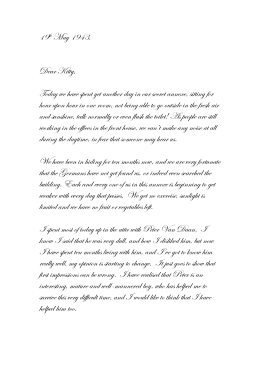 19th May 1943.
Dear Kitty,
Today we have spent yet another day in our secret annexe, sitting for
hour upon hour in one room, not being able to go outside in the fresh air
and sunshine, talk normally or even flush the toilet! As people are still
working in the offices in the front house, we can't make any noise at all
during the daytime, in fear that someone may hear us.
We have been in hiding for ten months now, and we are very fortunate
that the Germans have not yet found us, or indeed even searched the
building. Each and every one of us in this annexe is beginning to get
weaker with every day that passes. We get no exercise, sunlight is
limited and we have no fruit or vegetables left.
I spent most of today up in the attic with Peter Van Daan. I
know I said that he was very dull, and how I disliked him, but now
I have spent ten months being with him, and I've got to know him
really well, my opinion is starting to change. It just goes to show that
first impressions can be wrong. I have realised that Peter is an
interesting, mature and well-mannered boy, who has helped me to
survive this very difficult time, and I would like to think that I have
helped him too.